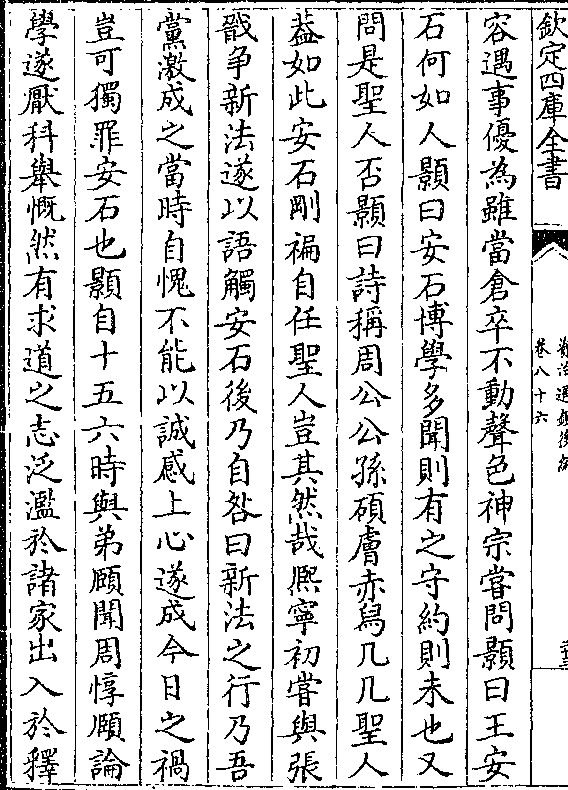 欽定四庫全書
卷八十六
容遇事優為雖當倉卒不動聲色神宗嘗問顥曰王安
石何如人顥曰安石博學多聞則有之守約則未也又
問是聖人否顥曰詩稱周公公孫碩膚赤舄几几聖人
葢如此安石剛褊自任聖人豈其然哉熈寧初嘗與張
戩争新法遂以語觸安石後乃自咎曰新法之行乃吾
黨激成之當時自愧不能以誠感上心遂成今日之禍
豈可獨罪安石也顥自十五六時與弟頤聞周惇頤論
學遂厭科舉慨然有求道之志泛濫於諸家出入於釋